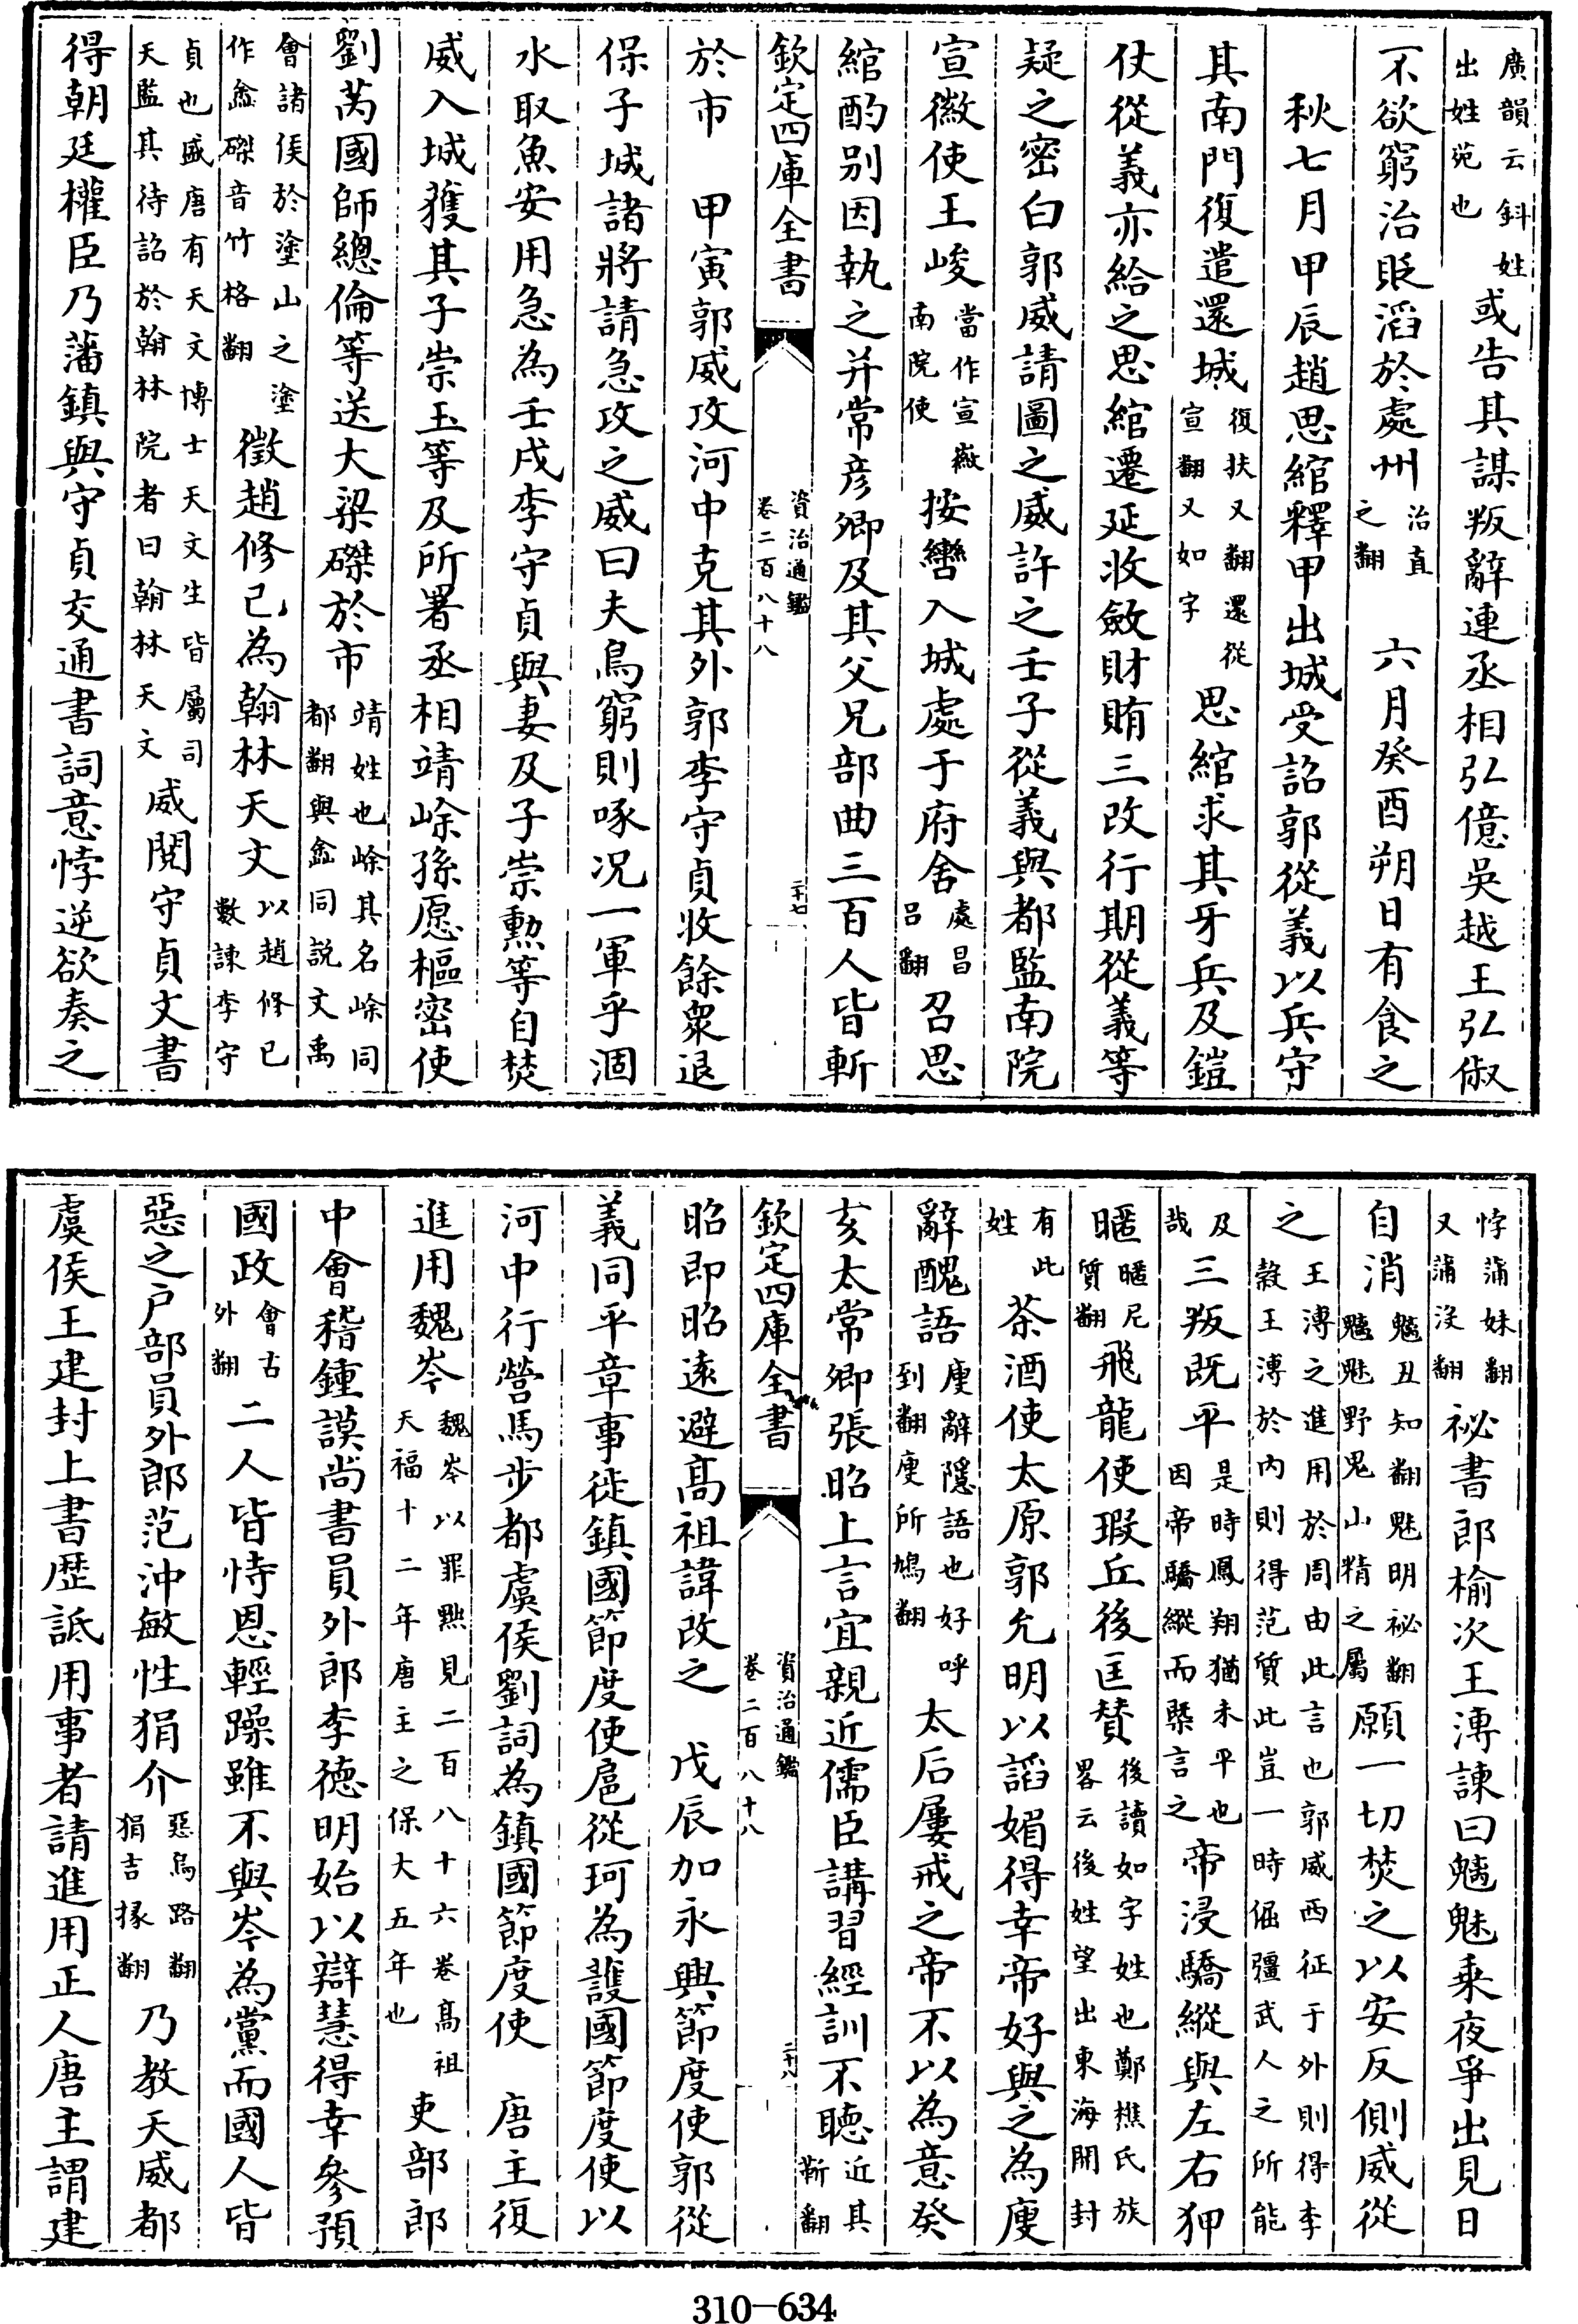 廣韻云鈄姓出姓苑也或告其謀叛辭連丞相弘億吳越王弘俶
不欲窮治貶滔於處州治直之翻　六月癸酉朔日有食之
秋七月甲辰趙思綰釋甲出城受詔郭從義以兵守
其南門復遣還城復扶又翻還從宣翻又如字思綰求其牙兵及鎧
仗從義亦給之思綰遷延收斂財賄三改行期從義等
疑之密白郭威請圖之威許之壬子從義與都監南院
宣徽使王峻當作宣徽南院使按轡入城處于府舍處昌呂翻召思
綰酌别因執之并常彦卿及其父兄部曲三百人皆斬
欽定四庫全書　資治通鑑卷二百八十八　二十七
於市　甲寅郭威攻河中克其外郭李守貞收餘衆退
保子城諸將請急攻之威曰夫鳥窮則啄况一軍乎涸
水取魚安用急為壬戌李守貞與妻及子崇勲等自焚
威入城獲其子崇玉等及所署丞相靖㟭孫愿樞密使
劉芮國師總倫等送大梁磔於市靖姓也㟭其名㟭同都翻與嵞同説文禹
會諸侯於塗山之塗作嵞磔音竹格翻徵趙修已為翰林天文以趙修已數諫李守
貞也盛唐有天文博士天文生皆屬司天監其待詔於翰林院者曰翰林天文威閱守貞文書
得朝廷權臣乃藩鎮與守貞交通書詞意悖逆欲奏之
悖蒲妹翻又蒲没翻祕書郎榆次王溥諫曰魑魅乘夜爭出見日
自消魑丑知翻魅明祕翻魑魅野鬼山精之屬願一切焚之以安反側威從
之王溥之進用於周由此言也郭威西征于外則得李穀王溥於内則得范質此豈一時倔彊武人之所能
及哉三叛既平是時鳳翔猶未平也因帝驕縱而槩言之帝浸驕縱與左右狎
暱暱尼質翻飛龍使瑕丘後匡贊後讀如字姓也鄭樵氏族畧云後姓望出東海開封
有此姓茶酒使太原郭允明以謟媚得幸帝好與之為廋
辭醜語廋辭隠語也好呼到翻廋所鳩翻太后屢戒之帝不以為意癸
亥太常卿張昭上言宜親近儒臣講習經訓不聽近其靳翻
欽定四庫全書　資治通鑑卷二百八十八　二十八
昭即昭遠避高祖諱改之　戊辰加永興節度使郭從
義同平章事徙鎮國節度使扈從珂為護國節度使以
河中行營馬步都虞侯劉詞為鎮國節度使　唐主復
進用魏岑魏岑以罪黜見二百八十六卷高祖天福十二年唐主之保大五年也吏部郎
中會稽鍾謨尚書員外郎李德明始以辯慧得幸參預
國政會古外翻二人皆恃恩輕躁雖不與岑為黨而國人皆
惡之戸部員外郎范沖敏性狷介惡烏路翻狷吉掾翻乃教天威都
虞侯王建封上書歴詆用事者請進用正人唐主謂建
310-634